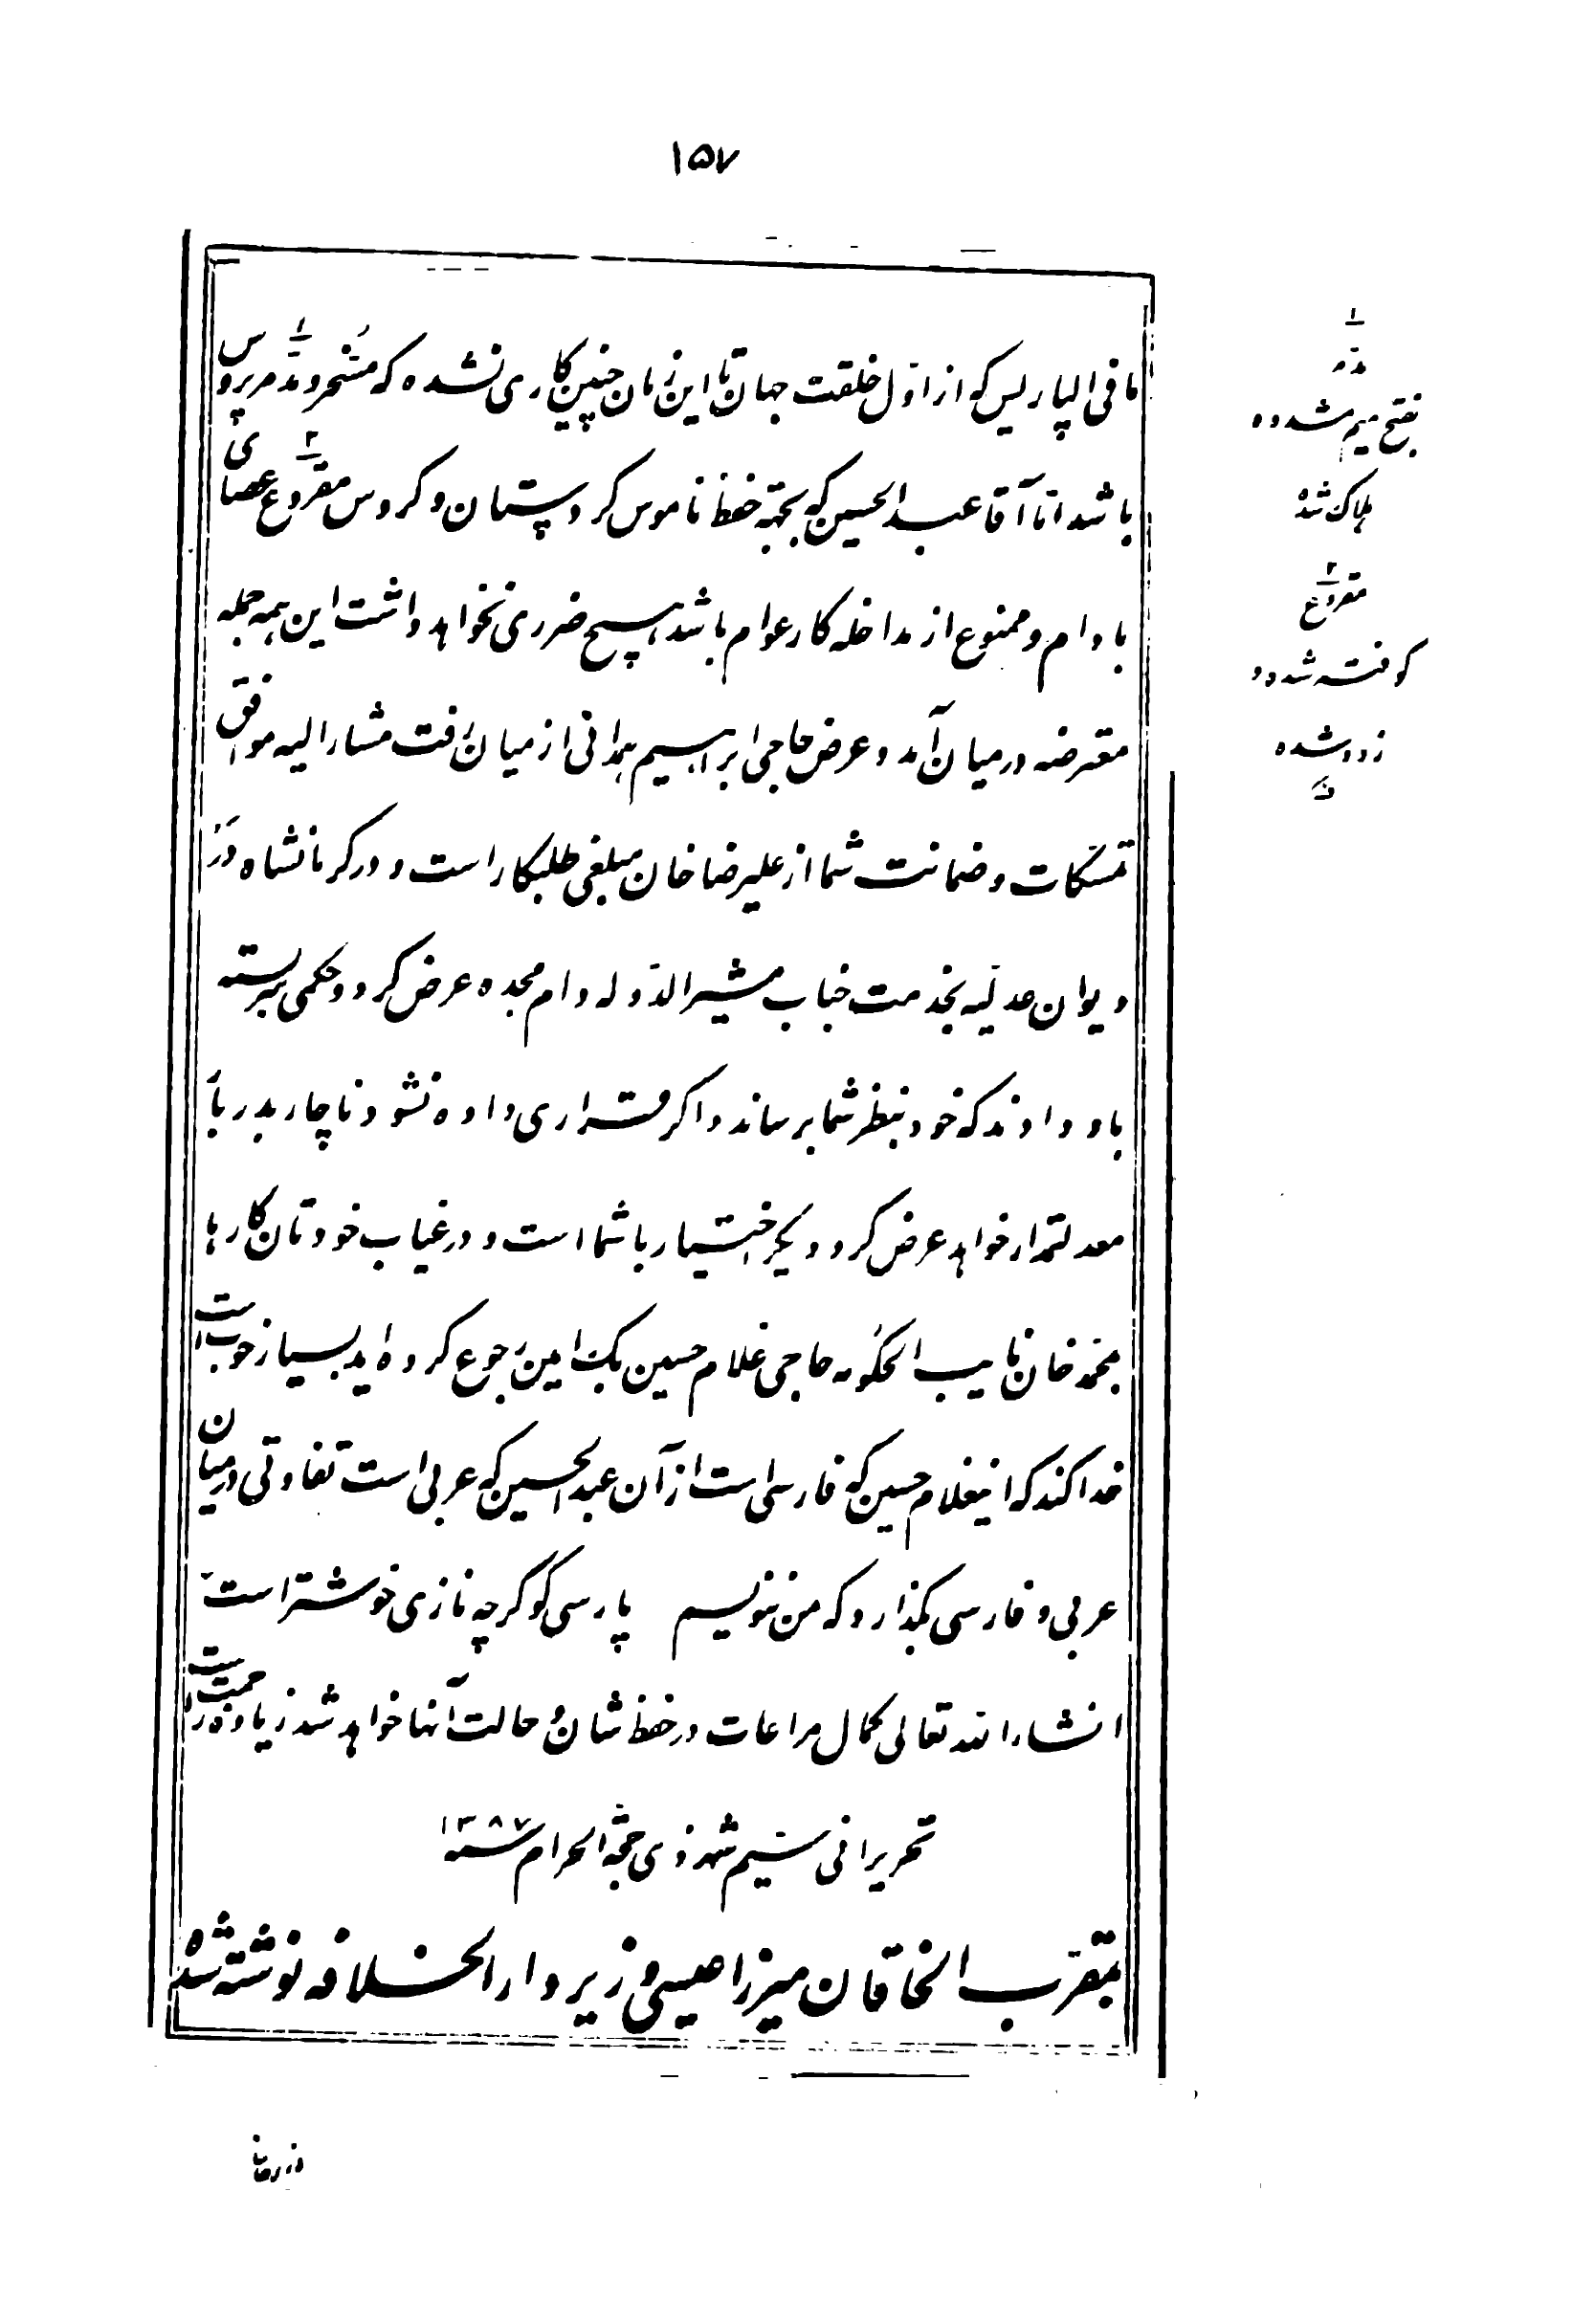 ۱۵۷
ما فی الپاریس که از اوّل خلقت جهان تا این زمان چنین کاری نشده که مدمر پروس
باشد امّا آقا عبدالحسین که بجهة حفظ ناموس کردستان و کروس مقروع عصای
با دام و ممنوع از مداخله کار عوام باشد هیچ ضرری نخواهد داشت این همه جمله
معترضه در میان آمد و عرض حاجی ابراهیم همدانی از میان رفت مشارالیه موافق
تمسکات و ضمانت شما از علیرضا خان مبلغی طلبکار است و در کرمانشاه در
دیوان عدلیه بخدمت جناب مشیرالدّوله دام مجده عرض کرد و حکمی سربسته
باو دادند که خود بنظر شما برساند و اکر قراری داده نشود ناچار بدربار
معدلتمدار خواهد عرض کرد دیکر اختیار با شما است و در غیاب خودتان کارها
بمحمد خان نایب الحکومه حاجی غلامحسین بک امین رجوع کرده اید بسیار خوب است
خدا کند که اینغلام حسین که فارسی است از آن عبدالحسین که عربی است تفاوتی در میان
عربی و فارسی بکذارد که من بنویسم پارسی کو کرچه تازی خوشتر است
انشاءالله تعالی کمال مراعات در حفظ شان و حالت آنها خواهد شد زیاده زحمت است
تحریرا فی شهر ذی حجة الحرام سنه ۱۲۸۷
بمقرب الخاقان میرزا عیسی وزیر دارالخلافه نوشته شده
۱
مدمر
بفتح میم مشدده
هلاک شده
۲
مقروع
کوفته شده و
زده شده